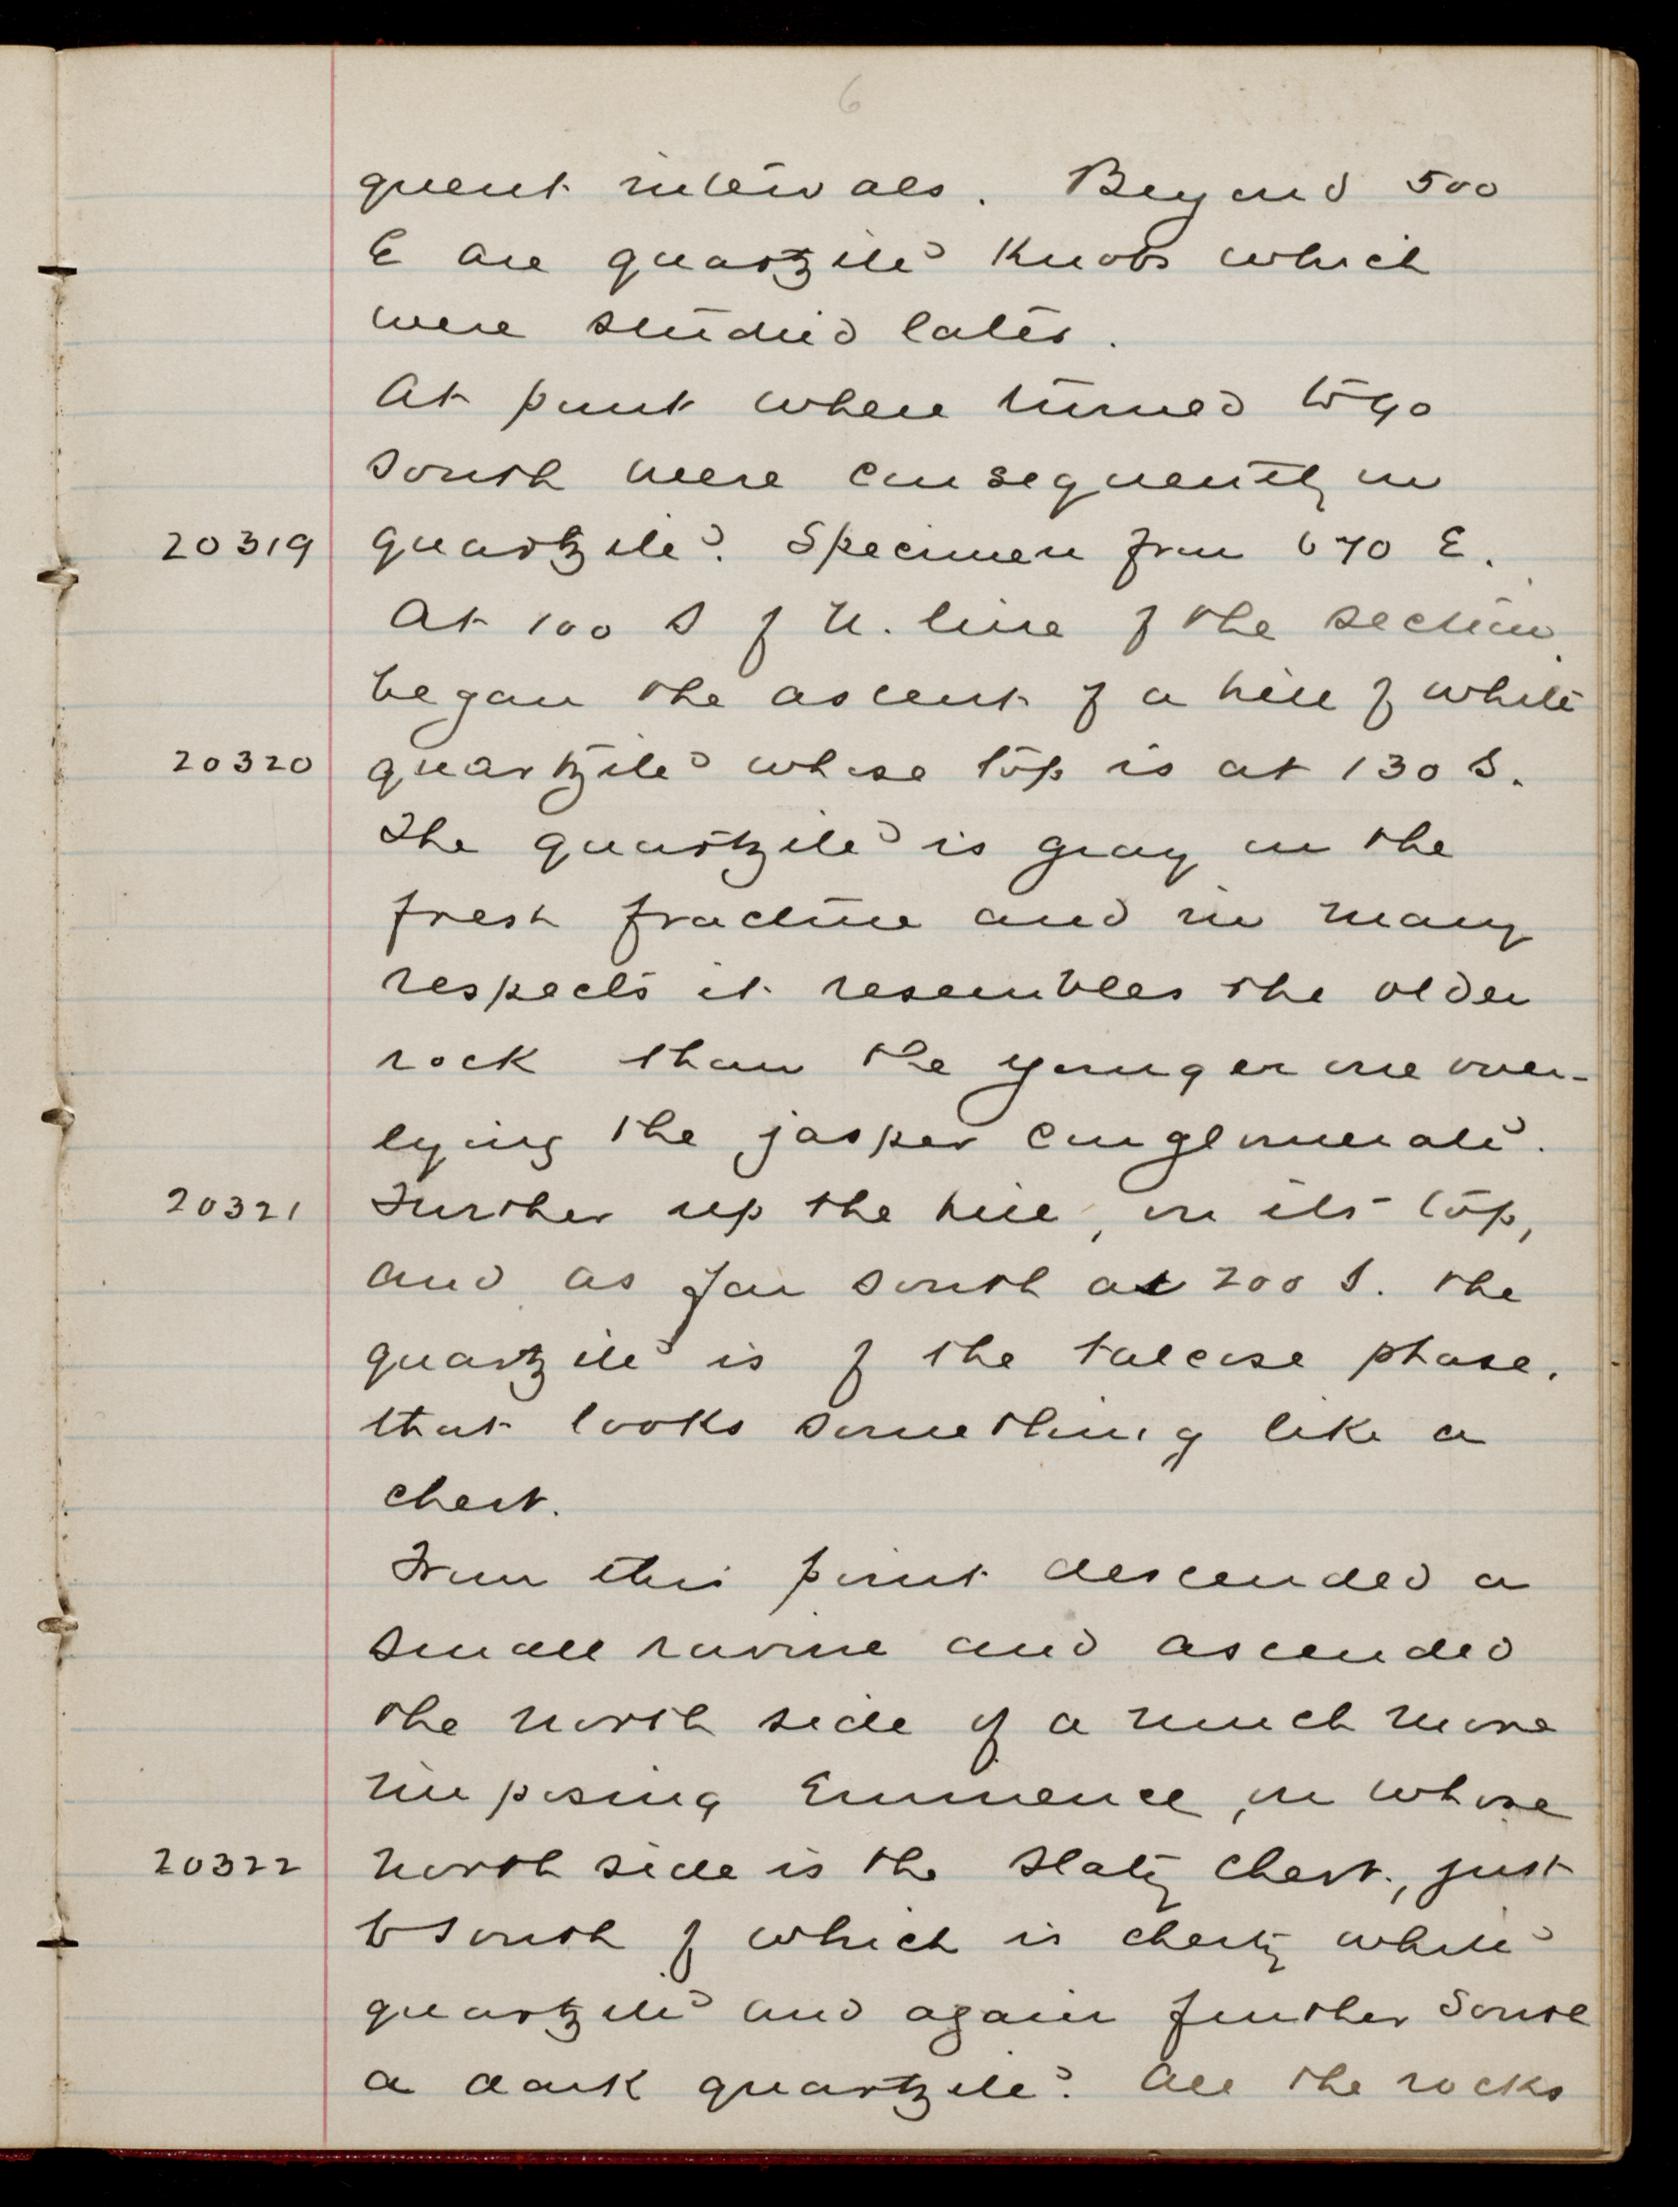 6
quent intervals. Beyond 500
E are quartzite knobs which
were studied later.
At point where turned to go
south were consequently in
20319 quartzite. Specimen from 670 E.
At 100 S of N. line of the section
began the ascent of a hill of white
20320 quartzite whose top is at 130 S.
The quartzite is gray on the
fresh fracture and in many
respects it resembles the older
rock than the younger one over-
lying the jasper conglomerate.
20321 Further up the hill, on its top,
and as far south as 200 S. the
quartzite is of the talcose phase,
that looks something like a
chert.
From this point descended a
small ravine and ascended
the north side of a much more
imposing Eminence, on whose
20322 north side is the slaty chert, just
to south of which is cherty white
quartzite and again further South
a dark quartzite. All the rocks